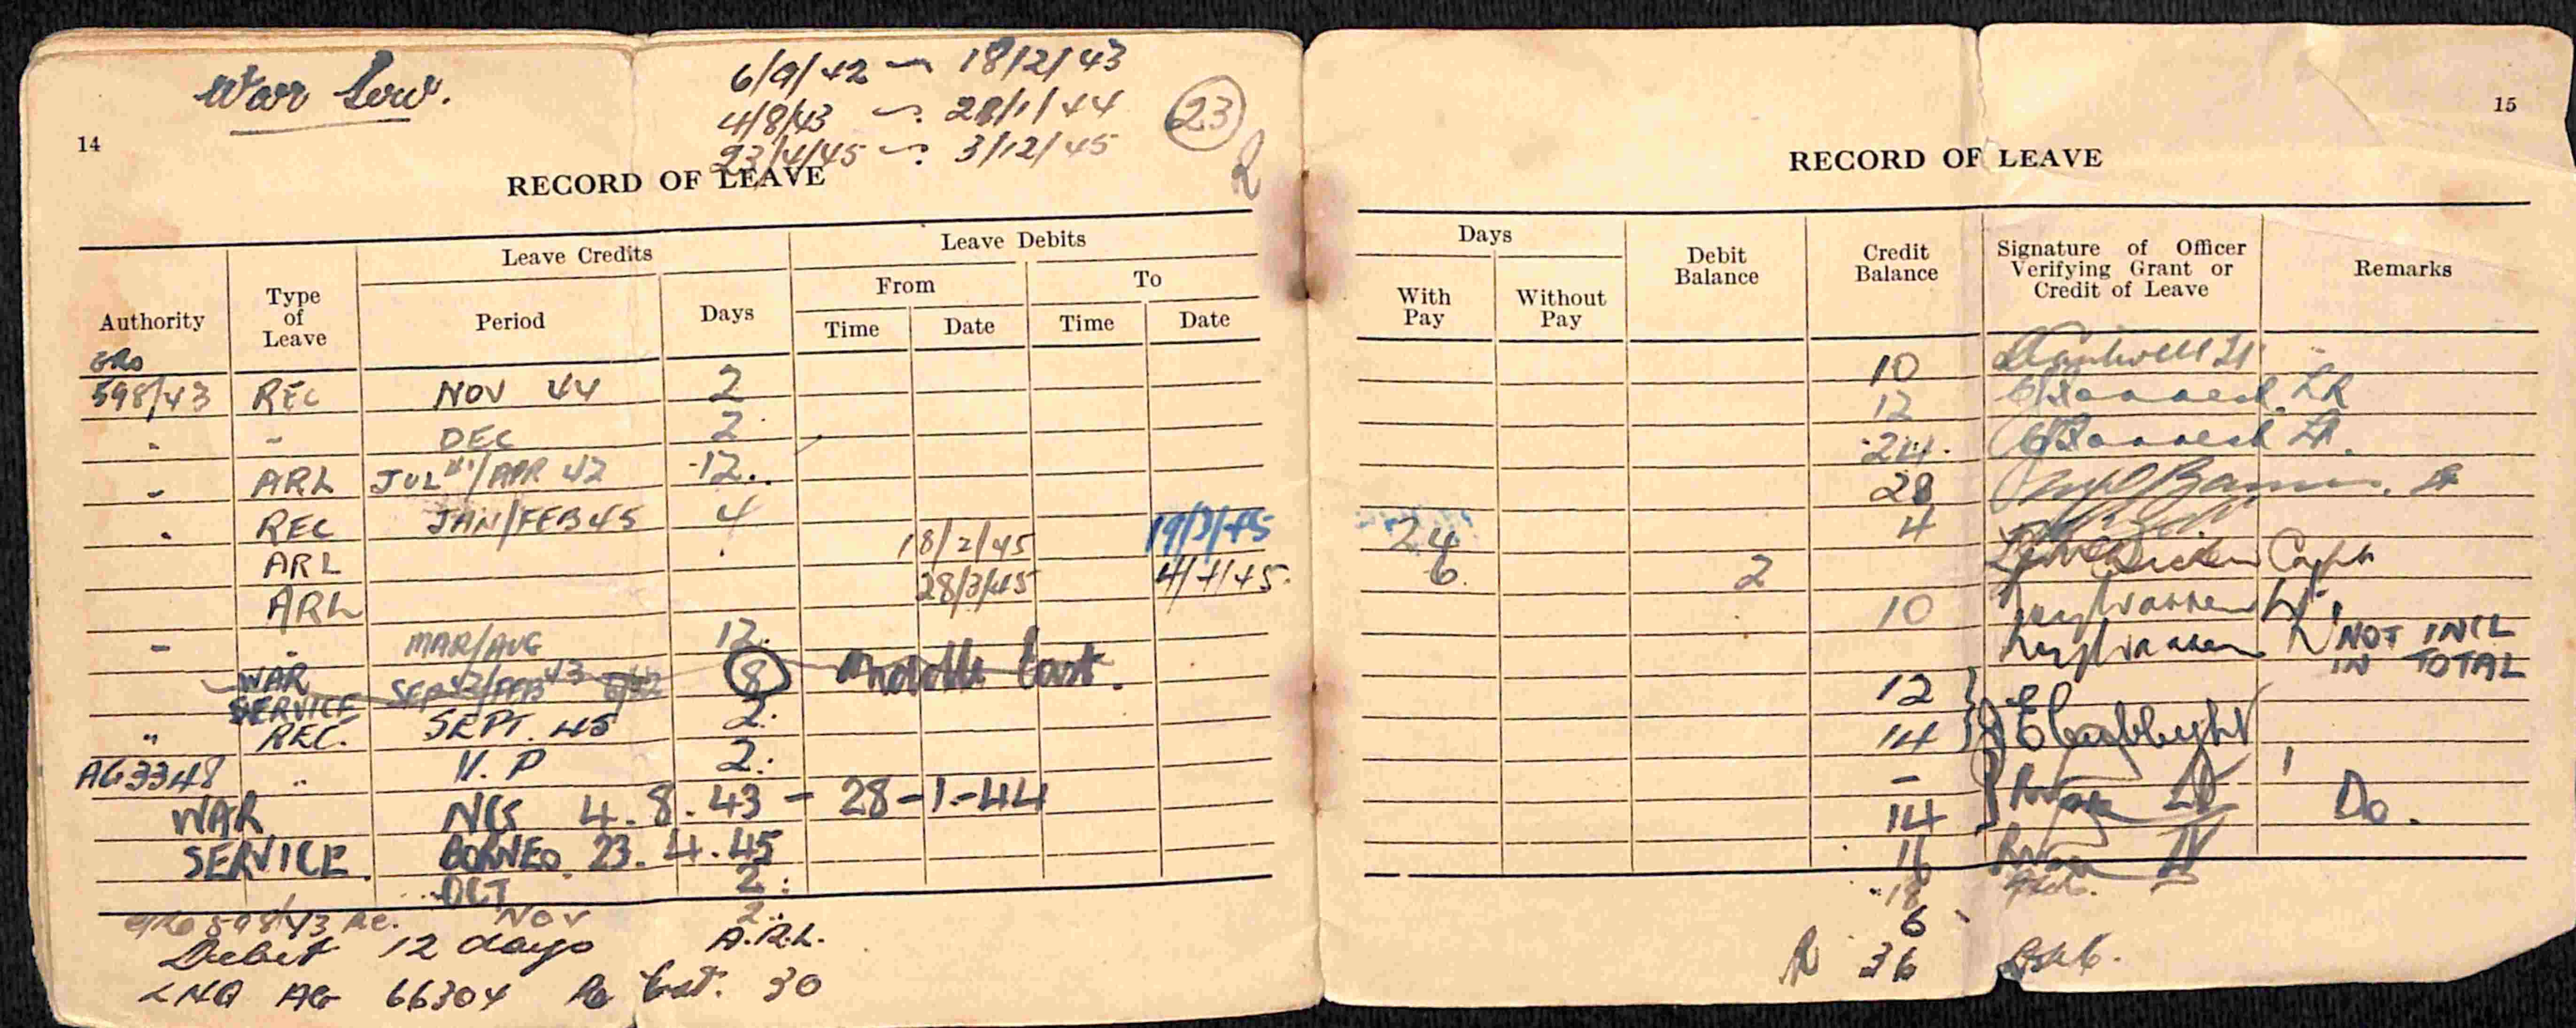 War Serv.
6/9/42 — 18/2/43
4/8/43 — 28/1/44
23/4/45 — 3/12/45
23
14
RECORD OF LEAVE
Authority
Type of Leave
Leave Credits
Leave Debits
Period
Days
From
To
Time
Date
Time
Date
GRO
598/43 REC NOV 44 2
" - DEC 2
- ARL JUL 41/APR 42 12
" REC JAN/FEB 45 4
ARL 18/2/45 19/3/45
ARL 28/3/45 4/4/45
- - MAR/AUG 12
WAR SERVICE SEP 42/FEB 43 8 Middle East.
" REC. SEPT. 45 2
AG3348 " V. P 2
WAR NG 4.8.43 - 28-1-44
SERVICE. BORNEO. 23.4.45
OCT 2
GRO 598/43 Rec. NOV 2
Debit 12 days A.R.L.
LHQ AG 66304 30
15
RECORD OF LEAVE
Days
With Pay
Without Pay
Debit Balance
Credit Balance
Signature of Officer Verifying Grant or Credit of Leave
Remarks
10
12
24
28
24 4
6 2 Capt
10
NOT INCL
IN TOTAL
12
14
-
14 Do.
16
18
6
R 36